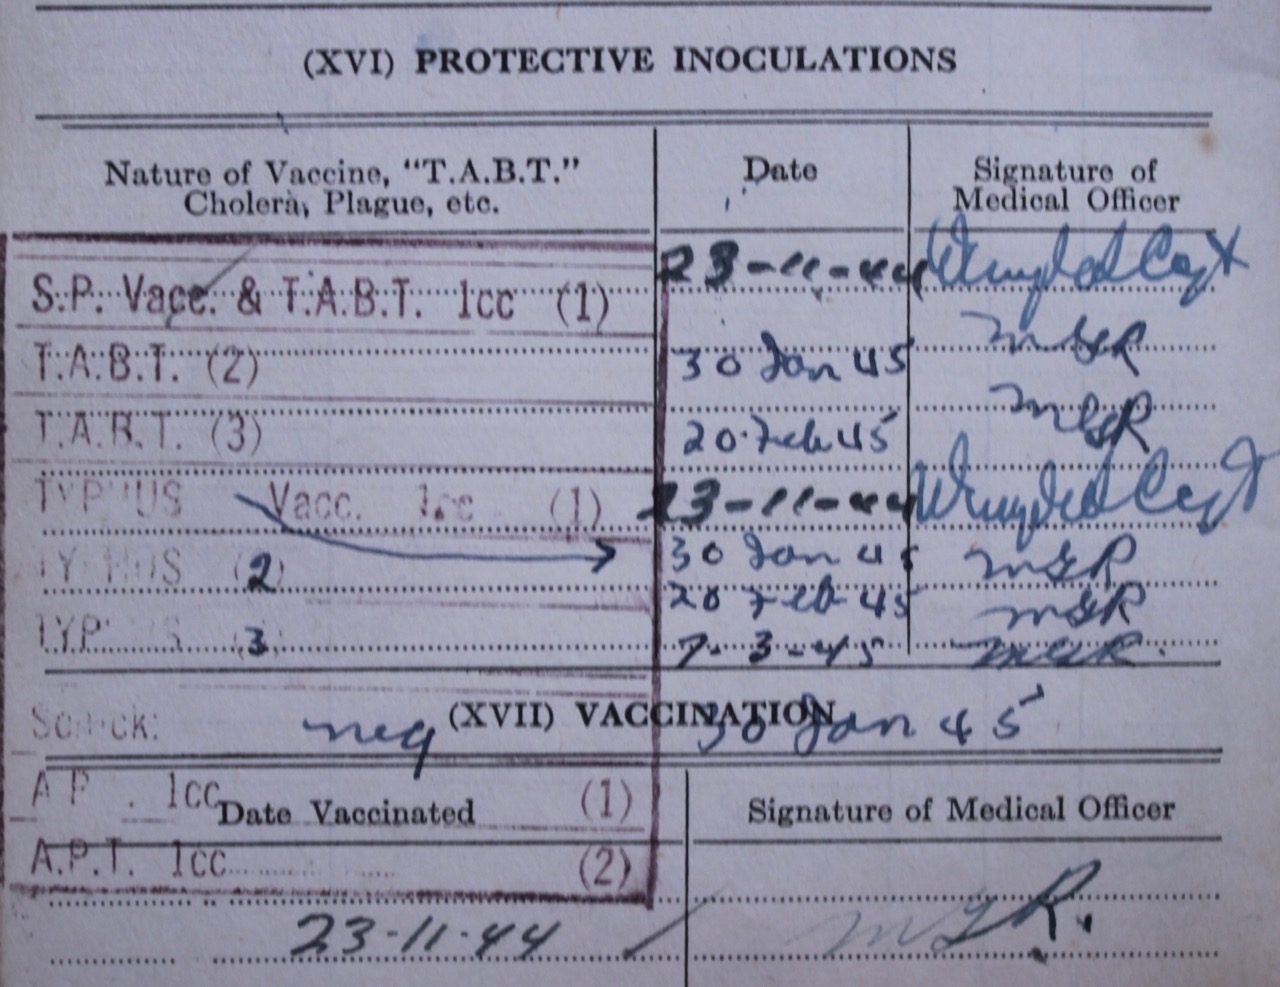 (XVI) PROTECTIVE INOCULATIONS
Nature of Vaccine, "T.A.B.T." Date Signature of
Cholera, Plague, etc. Medical Officer
S.P. Vacc. & T.A.B.T. 1cc (1) 23-11-44 Capt
T.A.B.T. (2) 30 Jan 45 MGR
T.A.B.T. (3) 20 Feb 45 MGR
TYPHUS Vacc. 1cc (1) 23-11-44 Capt
TYPHUS (2) 30 Jan 45 MGR
20 Feb 45 MGR
TYPHUS (3) 7-3-45 MGR
(XVII) VACCINATION
Schick: neg 30 Jan 45
A.P. . 1cc (1)
Date Vaccinated Signature of Medical Officer
A.P.T. 1cc (2)
23-11-44 MGR.